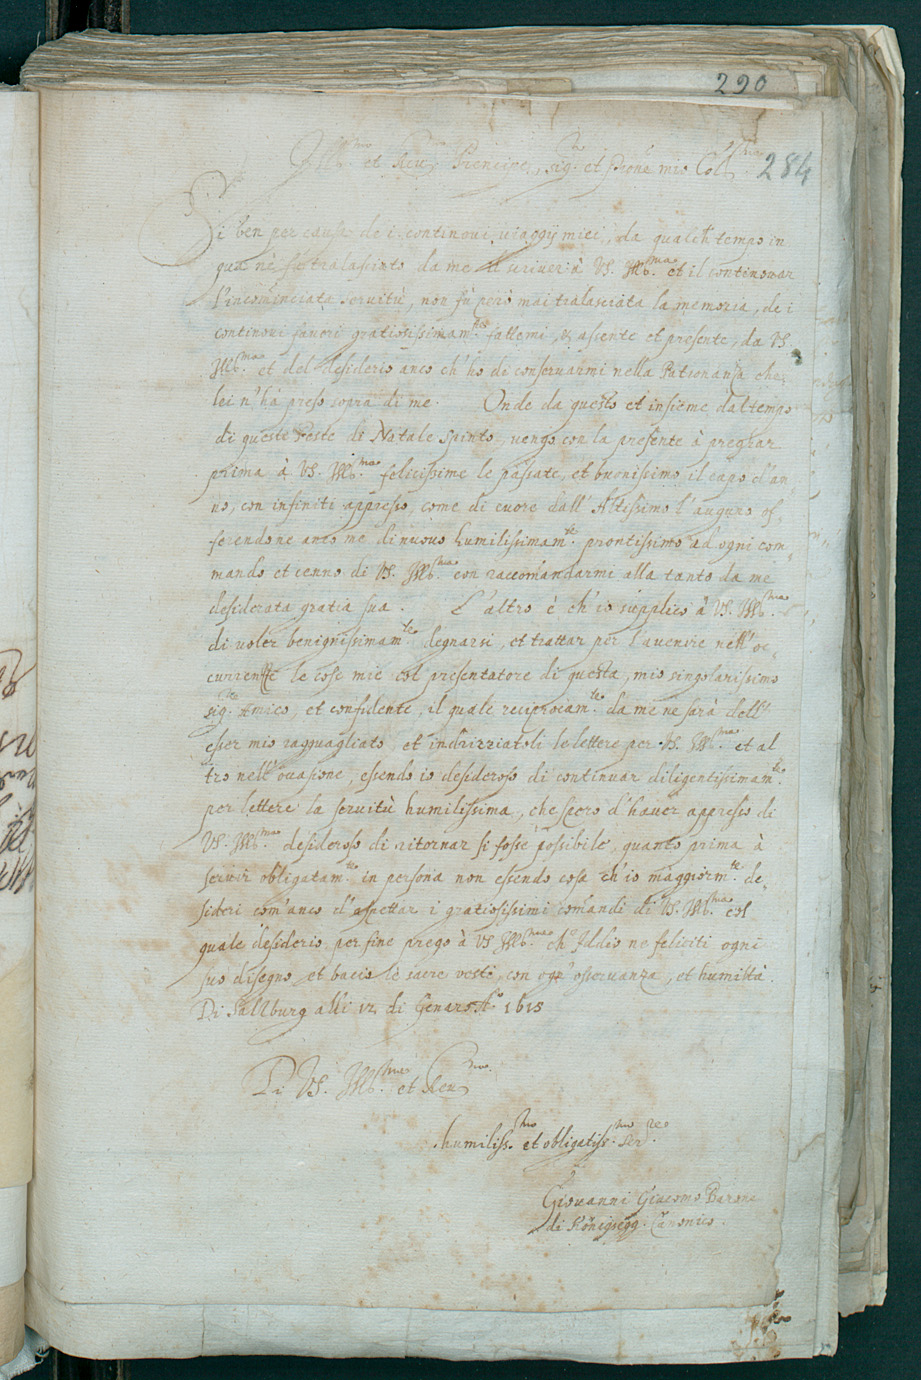 290
Ill.mo et Reu.mo Principe, Sig.r et Prone mio Col.mo 284
Si ben per causa de i continoui uiaggÿ miei, da qualch tempo in
qua nè fu tralassiato da me il scriuer à VS. Ill.ma et il continouar
l'incominciata seruitù, non fù però mai tralasciata la memoria, de i
continoui fauori gratiosissimam.te fattemi, et assente et presente, da VS.
Ill.ma et del desiderio anco ch'hò di conseruarmi nella Patronanza che
lei n'hà preso sopra di me. Onde da questo et insieme dal tempo
di queste Feste di Natale spinto, vengo con la presente à preghar
prima à VS. Ill.ma felicissime le passate, et buonissimo il capo d'an-
no, con infiniti appresso, come di cuore dall' Altissimo l'auguro of-
ferendone anco me di nuouo humilissimam.te prontissimo ad ogni com-
mando et cenno di VS. Ill.ma con raccomandarmi alla tanto da me
desiderata gratia sua. L'altro è ch'io supplico à VS. Ill.ma
di uoler benignissimam.te degnarsi, et trattar per l'auenire nell'oc-
currenze le cose mie col presentatore di questa, mio singolarissimo
sig.re Amico, et confidente, il quale reciprocam.te da me ne sarà dell'
esser mio ragguagliato, et indrizziatoli le lettere per VS. Ill.ma et al
tro nell'ocasione, essendo io desideroso di continuar diligentissimam.te
per lettere la seruitù humilissima, che spero d'hauer appresso di
VS. Ill.ma desideroso di ritornar si fosse possibile, quanto prima à
seruir obligatam.te in persona non essendo cosa ch'io maggiorm.te de-
sideri com'anco d'aspettar i gratiosissimi comandi di VS. Ill.ma col
quale desiderio per fine prego à VS. Ill.ma ch' Iddio ne feliciti ogni
suo disegno et bacio le sacre vesti, con ogn'osseruanza, et humiltà.
Di Sallburg alli 12 di Genaro A.o 1615
Di VS. Ill.ma et Reu.ma
humiliss.mo et obligatiss.mo ser.re
Giouanni Giacomo Barone
di Königsegg. Canonico.